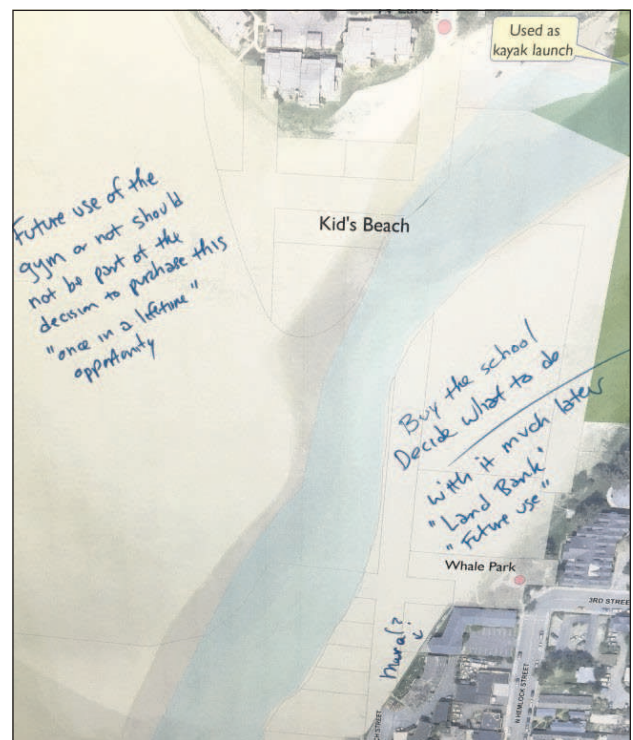 N Larch
Used as
kayak launch
Future use of the
gym or not should
not be part of the
decision to purchase this
"once in a lifetime"
opportunity
Kid's Beach
Buy the school
Decide what to do
with it much later
"Land Bank"
"Future use"
Whale Park
3RD STREE
mural?
N HEMLOCK STREET
CH STREET